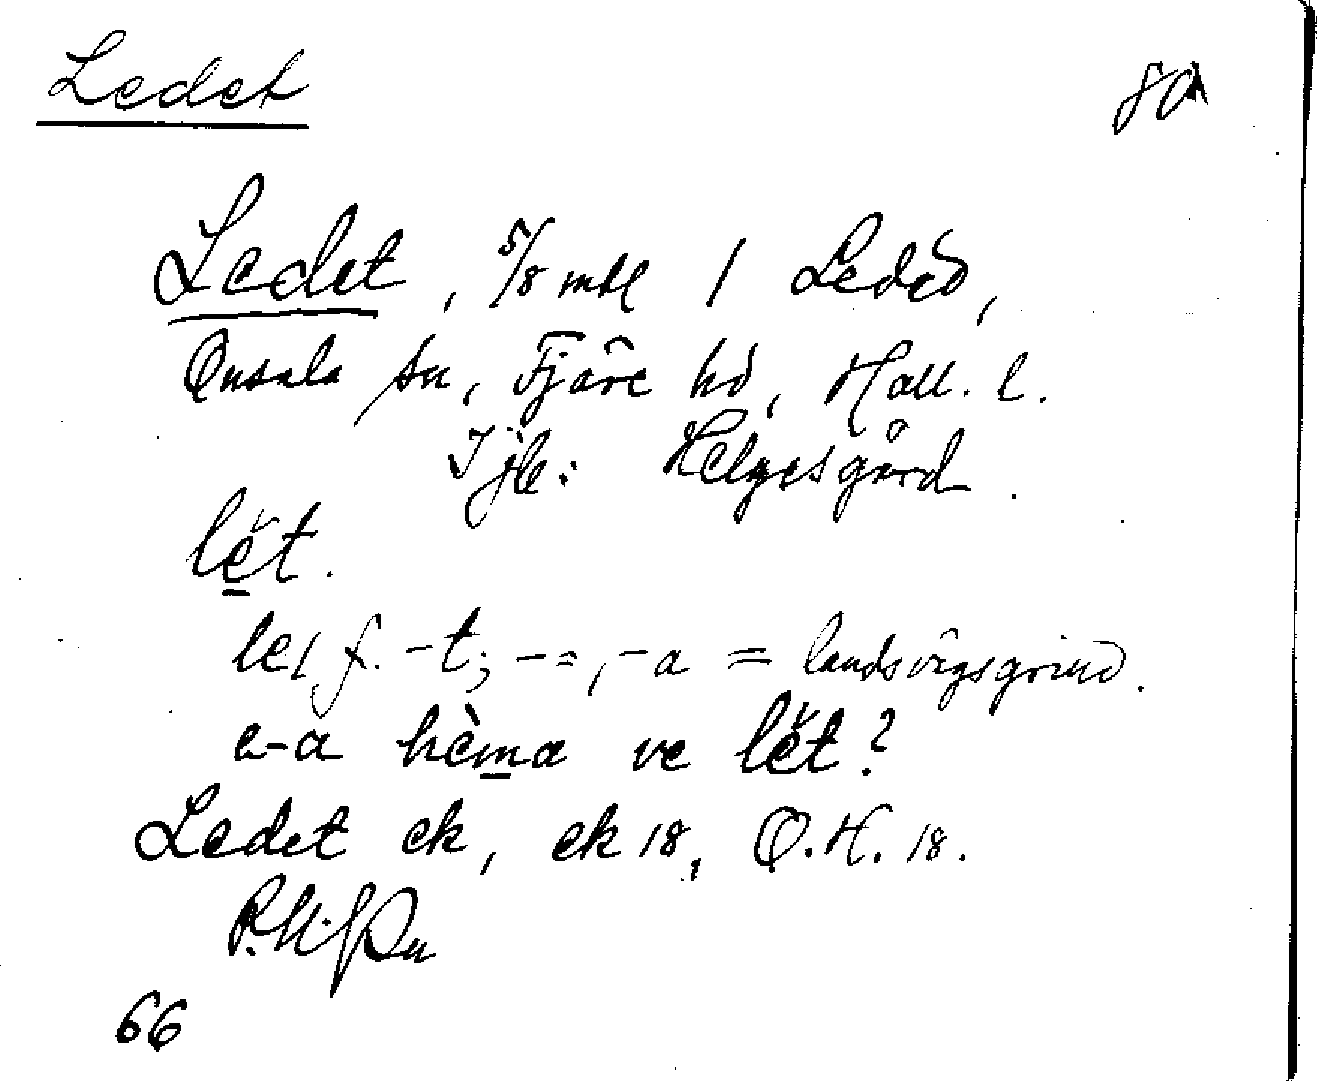 Ledet
Ledet, 5/8 mtl 1 Ledet,
Onsala sn, Fjäre hd, Hall. l.
Ijb: Helgesgård.
lĕt.
le, f. -t; -=, -a = landsvägsgrind.
hèma ve lĕt?
Ledet ek, ek 18, O.H. 18.
66